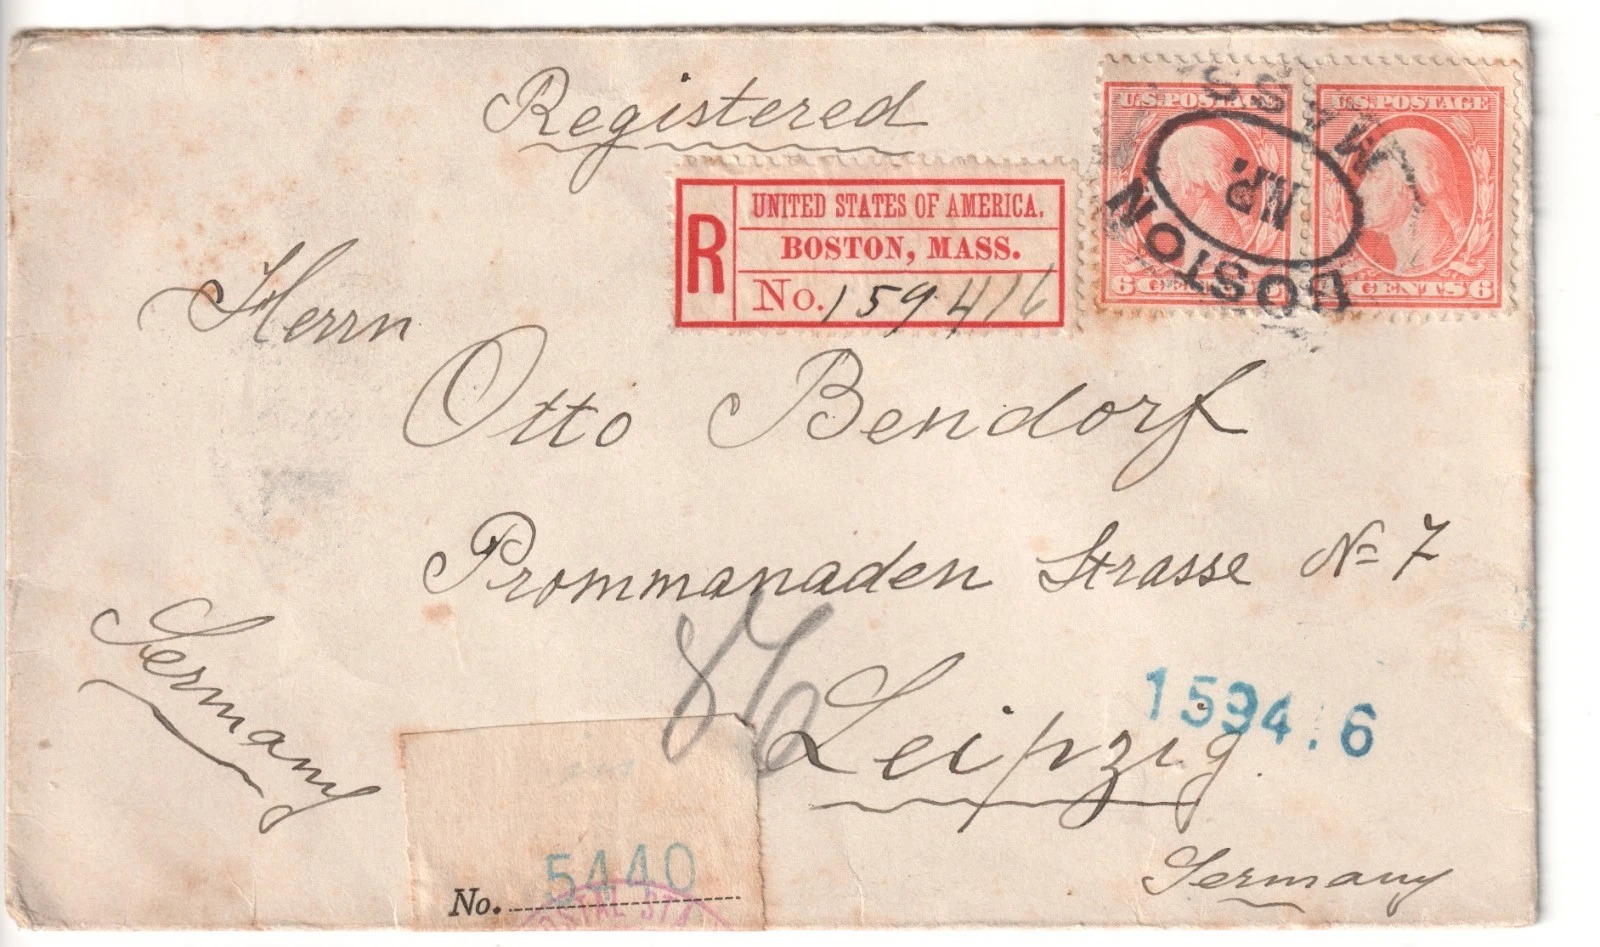 Registered
U.S. POSTAGE
U.S. POSTAGE
BOSTON MASS
N.P.
6 CENTS 6
CENTS 6
R
UNITED STATES OF AMERICA.
BOSTON, MASS.
No. 159416
Herrn
Otto Bendorf
Prommanaden Strasse No 7
Leipzig
Germany
Germany
1594.6
5440
No.
POSTAL STA